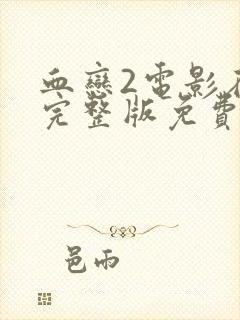 血戀2電影在
完整版免費
邑雨